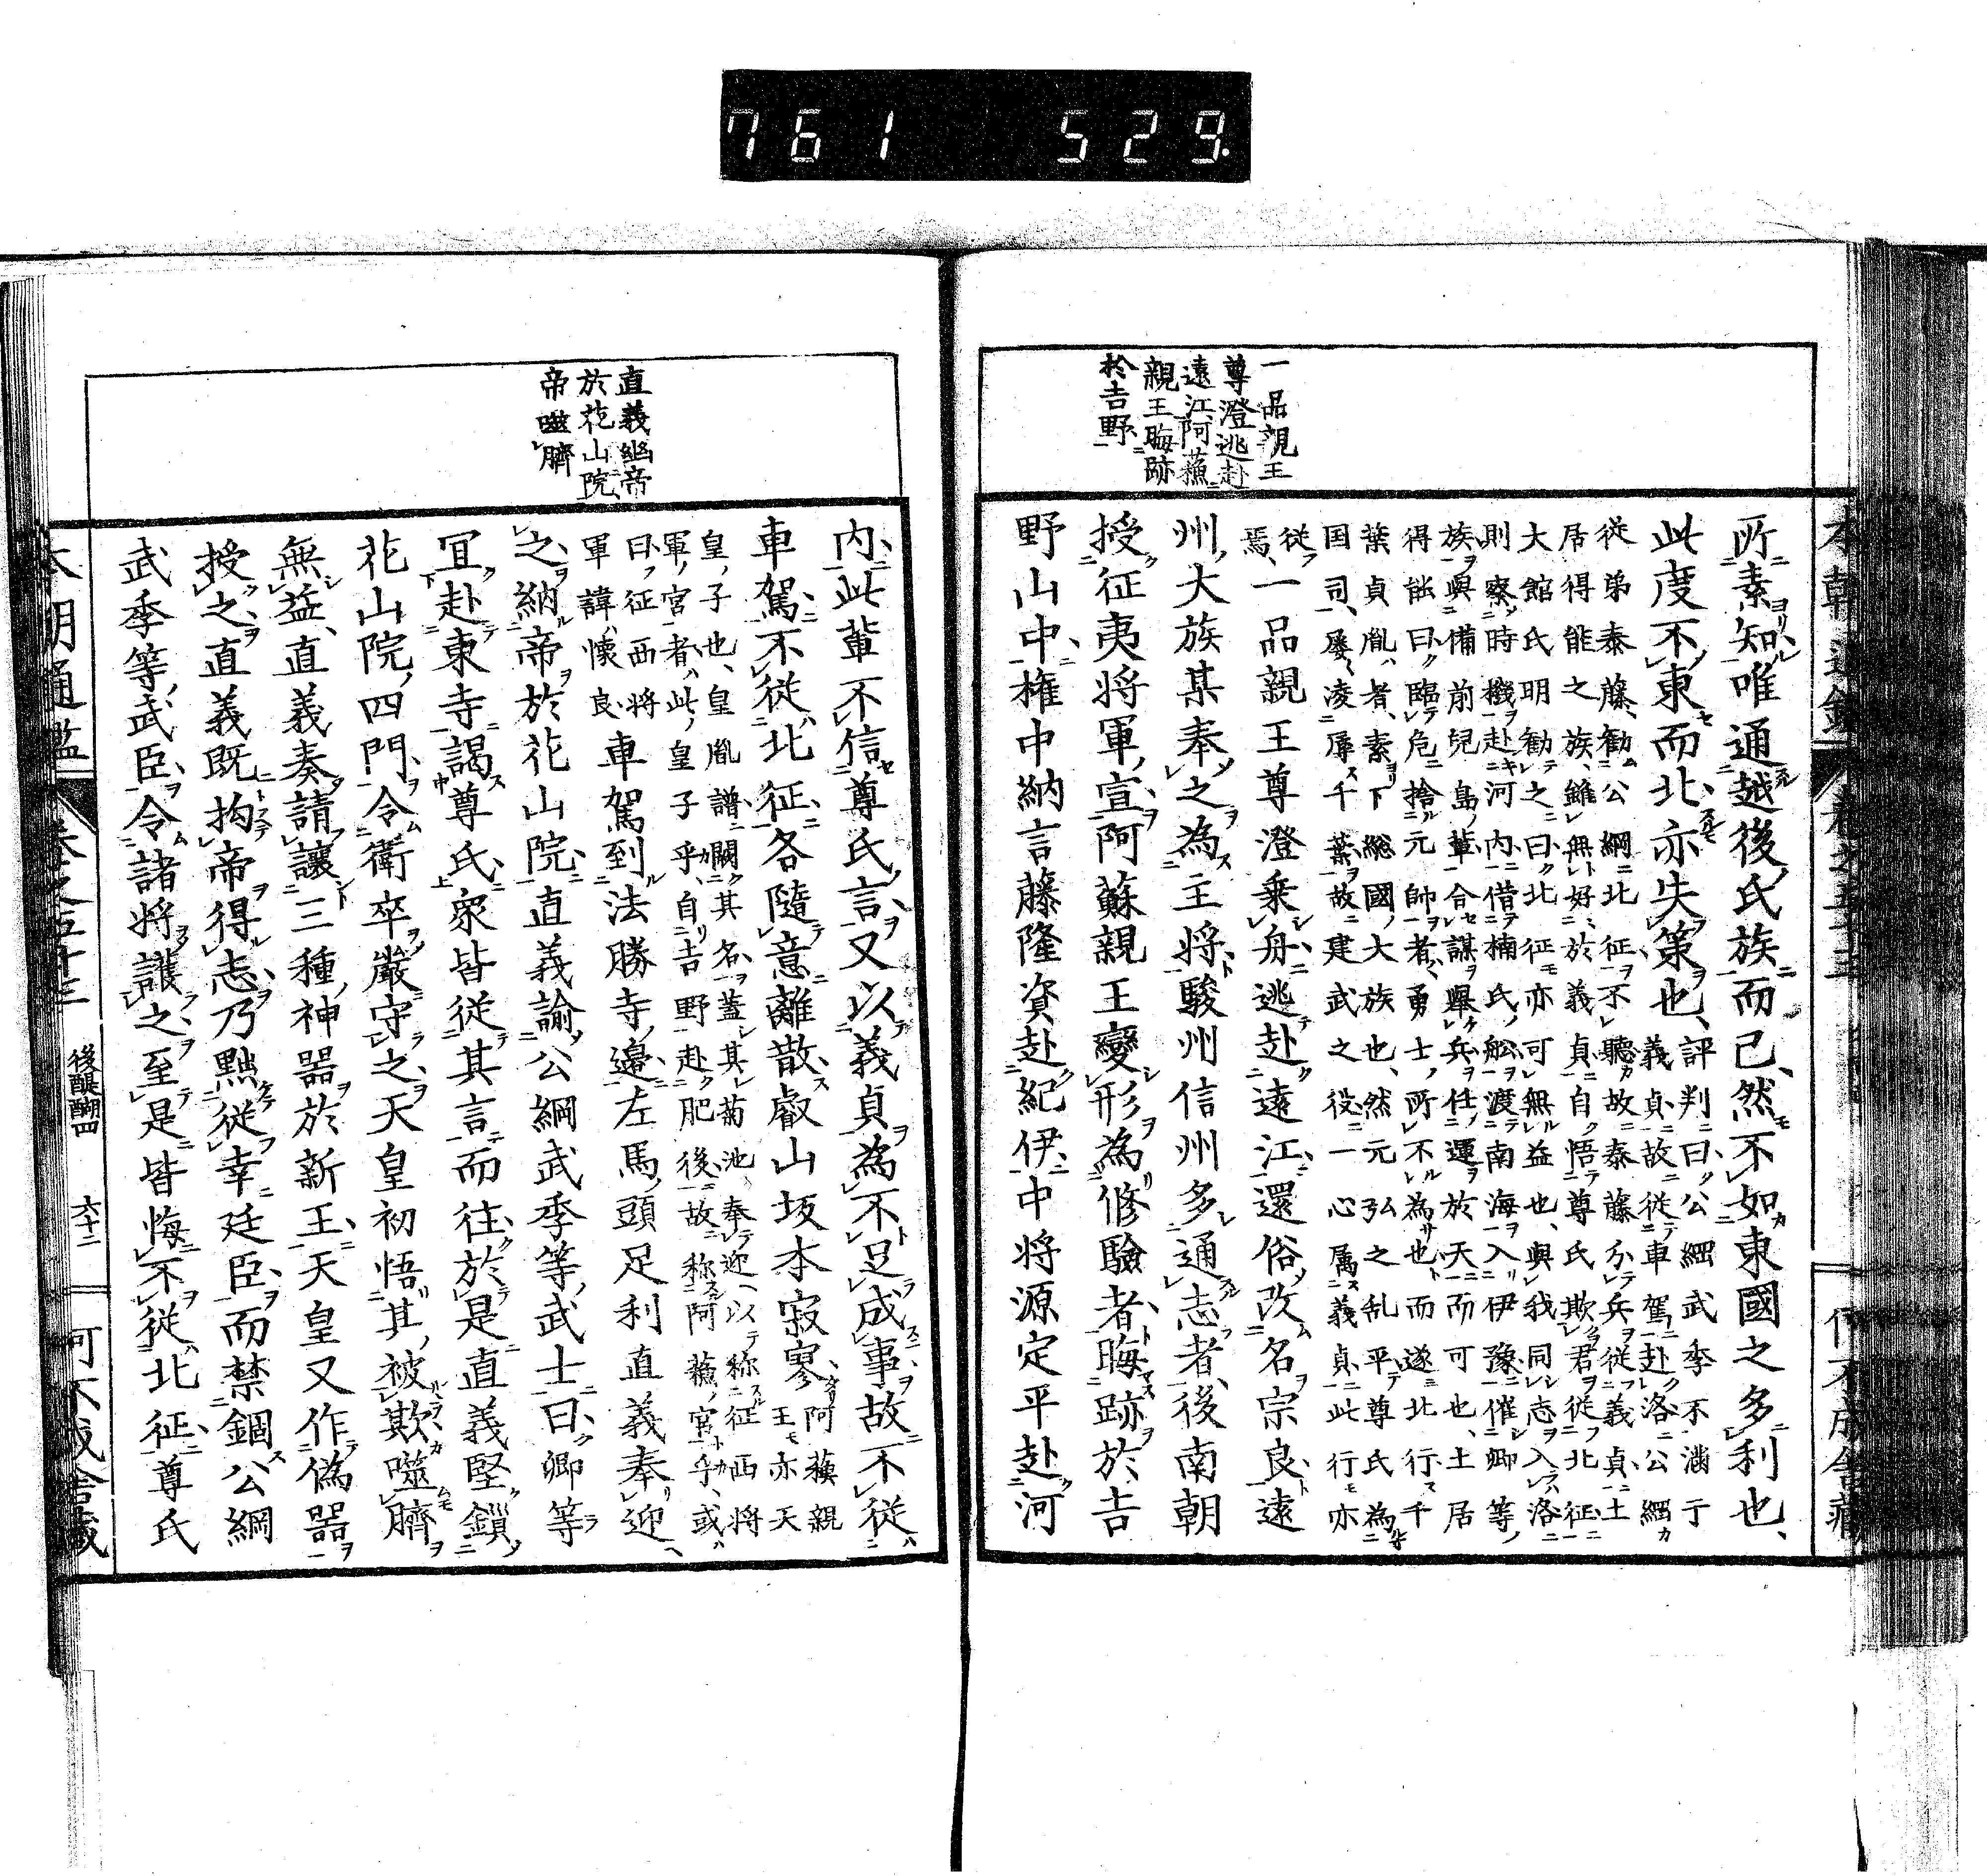 761 529.
一品親王
尊澄逃赴
遠江阿蘇
親王晦跡
於吉野
所素知唯通越後氏族而已然不如東國之多利也
此度不東而北亦失策也評判曰公綱武季不滿于
義貞故從車駕赴洛公綱
從弟泰藤勸公綱北征不聽故泰藤分兵從義貞土
居得能之族雖無好於義貞自悟尊氏欺君從北征
大館氏明勸之曰北征亦可無益也與我同志入洛
則察時機赴河内借楠氏舩渡南海入伊豫催卿等
族與備前兒島輩合謀舉兵任運於天而可也土居
得能曰臨危捨元帥者勇士所不為也而遂北行千
葉貞胤者素下総國大族也然元弘之乱平尊氏為
国司屡凌辱千葉故建武之役一心属義貞此行亦
從焉
一品親王尊澄乗舟逃赴遠江還俗改名宗良遠
州大族某奉之為主將駿州信州多通志者後南朝
授征夷將軍宣阿蘇親王變形為修驗者晦跡於吉
野山中権中納言藤隆資赴紀伊中将源定平赴河
本朝通鑑
直義幽帝
於花山院
帝噬臍
内此輩不信尊氏言又以義貞為不足成事故不從
車駕不從北征各隨意離散叡山坂本寂寥阿蘇親
王亦天
皇子也皇胤譜闕其名蓋其菊池奉迎以称征西將
軍宮者此皇子乎自吉野赴肥後故称阿蘇宮乎或
曰征西将
軍諱懐良
車駕到法勝寺邊左馬頭足利直義奉迎
之納帝於花山院直義諭公綱武季等武士曰卿等
宜赴東寺謁尊氏衆皆從其言而往於是直義堅鎖
花山院四門令衛卒嚴守之天皇初悟其被欺噬臍
無益直義奏請讓三種神器於新王天皇又作偽器
授之直義既拘帝得志乃黜從幸廷臣而禁錮公綱
武季等武臣令諸將護之至是皆悔不從北征尊氏
本朝通鑑
卷之百十三
後醍醐四
六十二